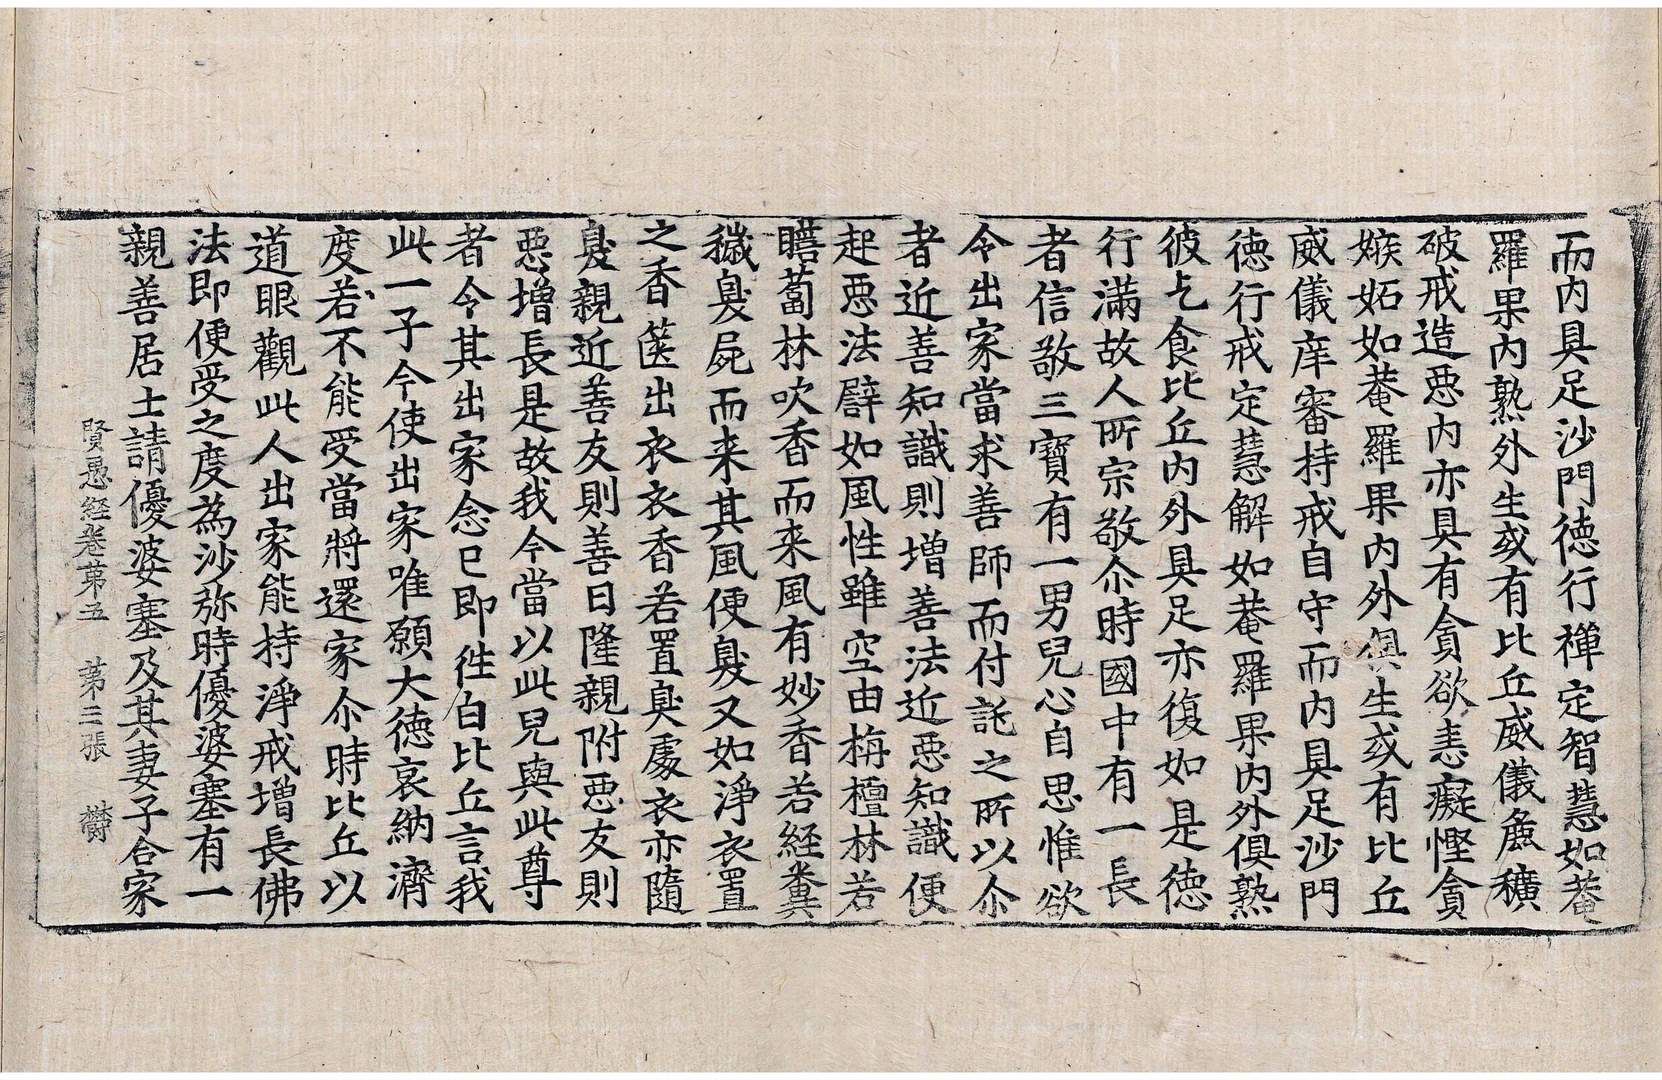 而內具足沙門德行禪定智慧如菴
羅果內熟外生或有比丘威儀麁穬
破戒造惡內亦具有貪欲恚癡慳貪
嫉妬如菴羅果內外俱生或有比丘
威儀庠審持戒自守而內具足沙門
德行戒定慧解如菴羅果內外俱熟
彼乞食比丘內外具足亦復如是德
行滿故人所宗敬尒時國中有一長
者信敬三寶有一男兒心自思惟欲
令出家當求善師而付託之所以尒
者近善知識則增善法近惡知識便
起惡法譬如風性雖空由栴檀林若
瞻蔔林吹香而来風有妙香若經糞
穢臭屍而来其風便臭又如淨衣置
之香篋出衣衣香若置臭處衣亦隨
臭親近善友則善日隆親附惡友則
惡增長是故我今當以此兒與此尊
者令其出家念已即往白比丘言我
此一子今使出家唯願大德哀納濟
度若不能受當將還家尒時比丘以
道眼觀此人出家能持淨戒增長佛
法即便受之度為沙弥時優婆塞有一
親善居士請優婆塞及其妻子合家
賢愚經卷第五 第三張 欝